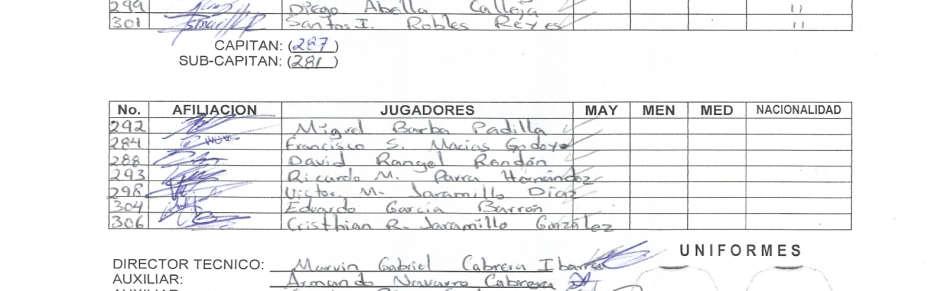 299 Diego Abella Calleja 11
301 Santos I. Robles Reyes 11
CAPITAN: (287)
SUB-CAPITAN: (281)
No. AFILIACION JUGADORES MAY MEN MED NACIONALIDAD
292 Miguel Barba Padilla
284 Francisco S. Macias Godoy
288 David Rangel Rendón
293 Ricardo M. Parra Hernández
298 Victor M. Jaramillo Díaz
304 Eduardo García Barrón
306 Cristhian R. Jaramillo González
UNIFORMES
DIRECTOR TECNICO: Marvin Gabriel Cabrera Ibarra
AUXILIAR: Armando Navarro Cabrera